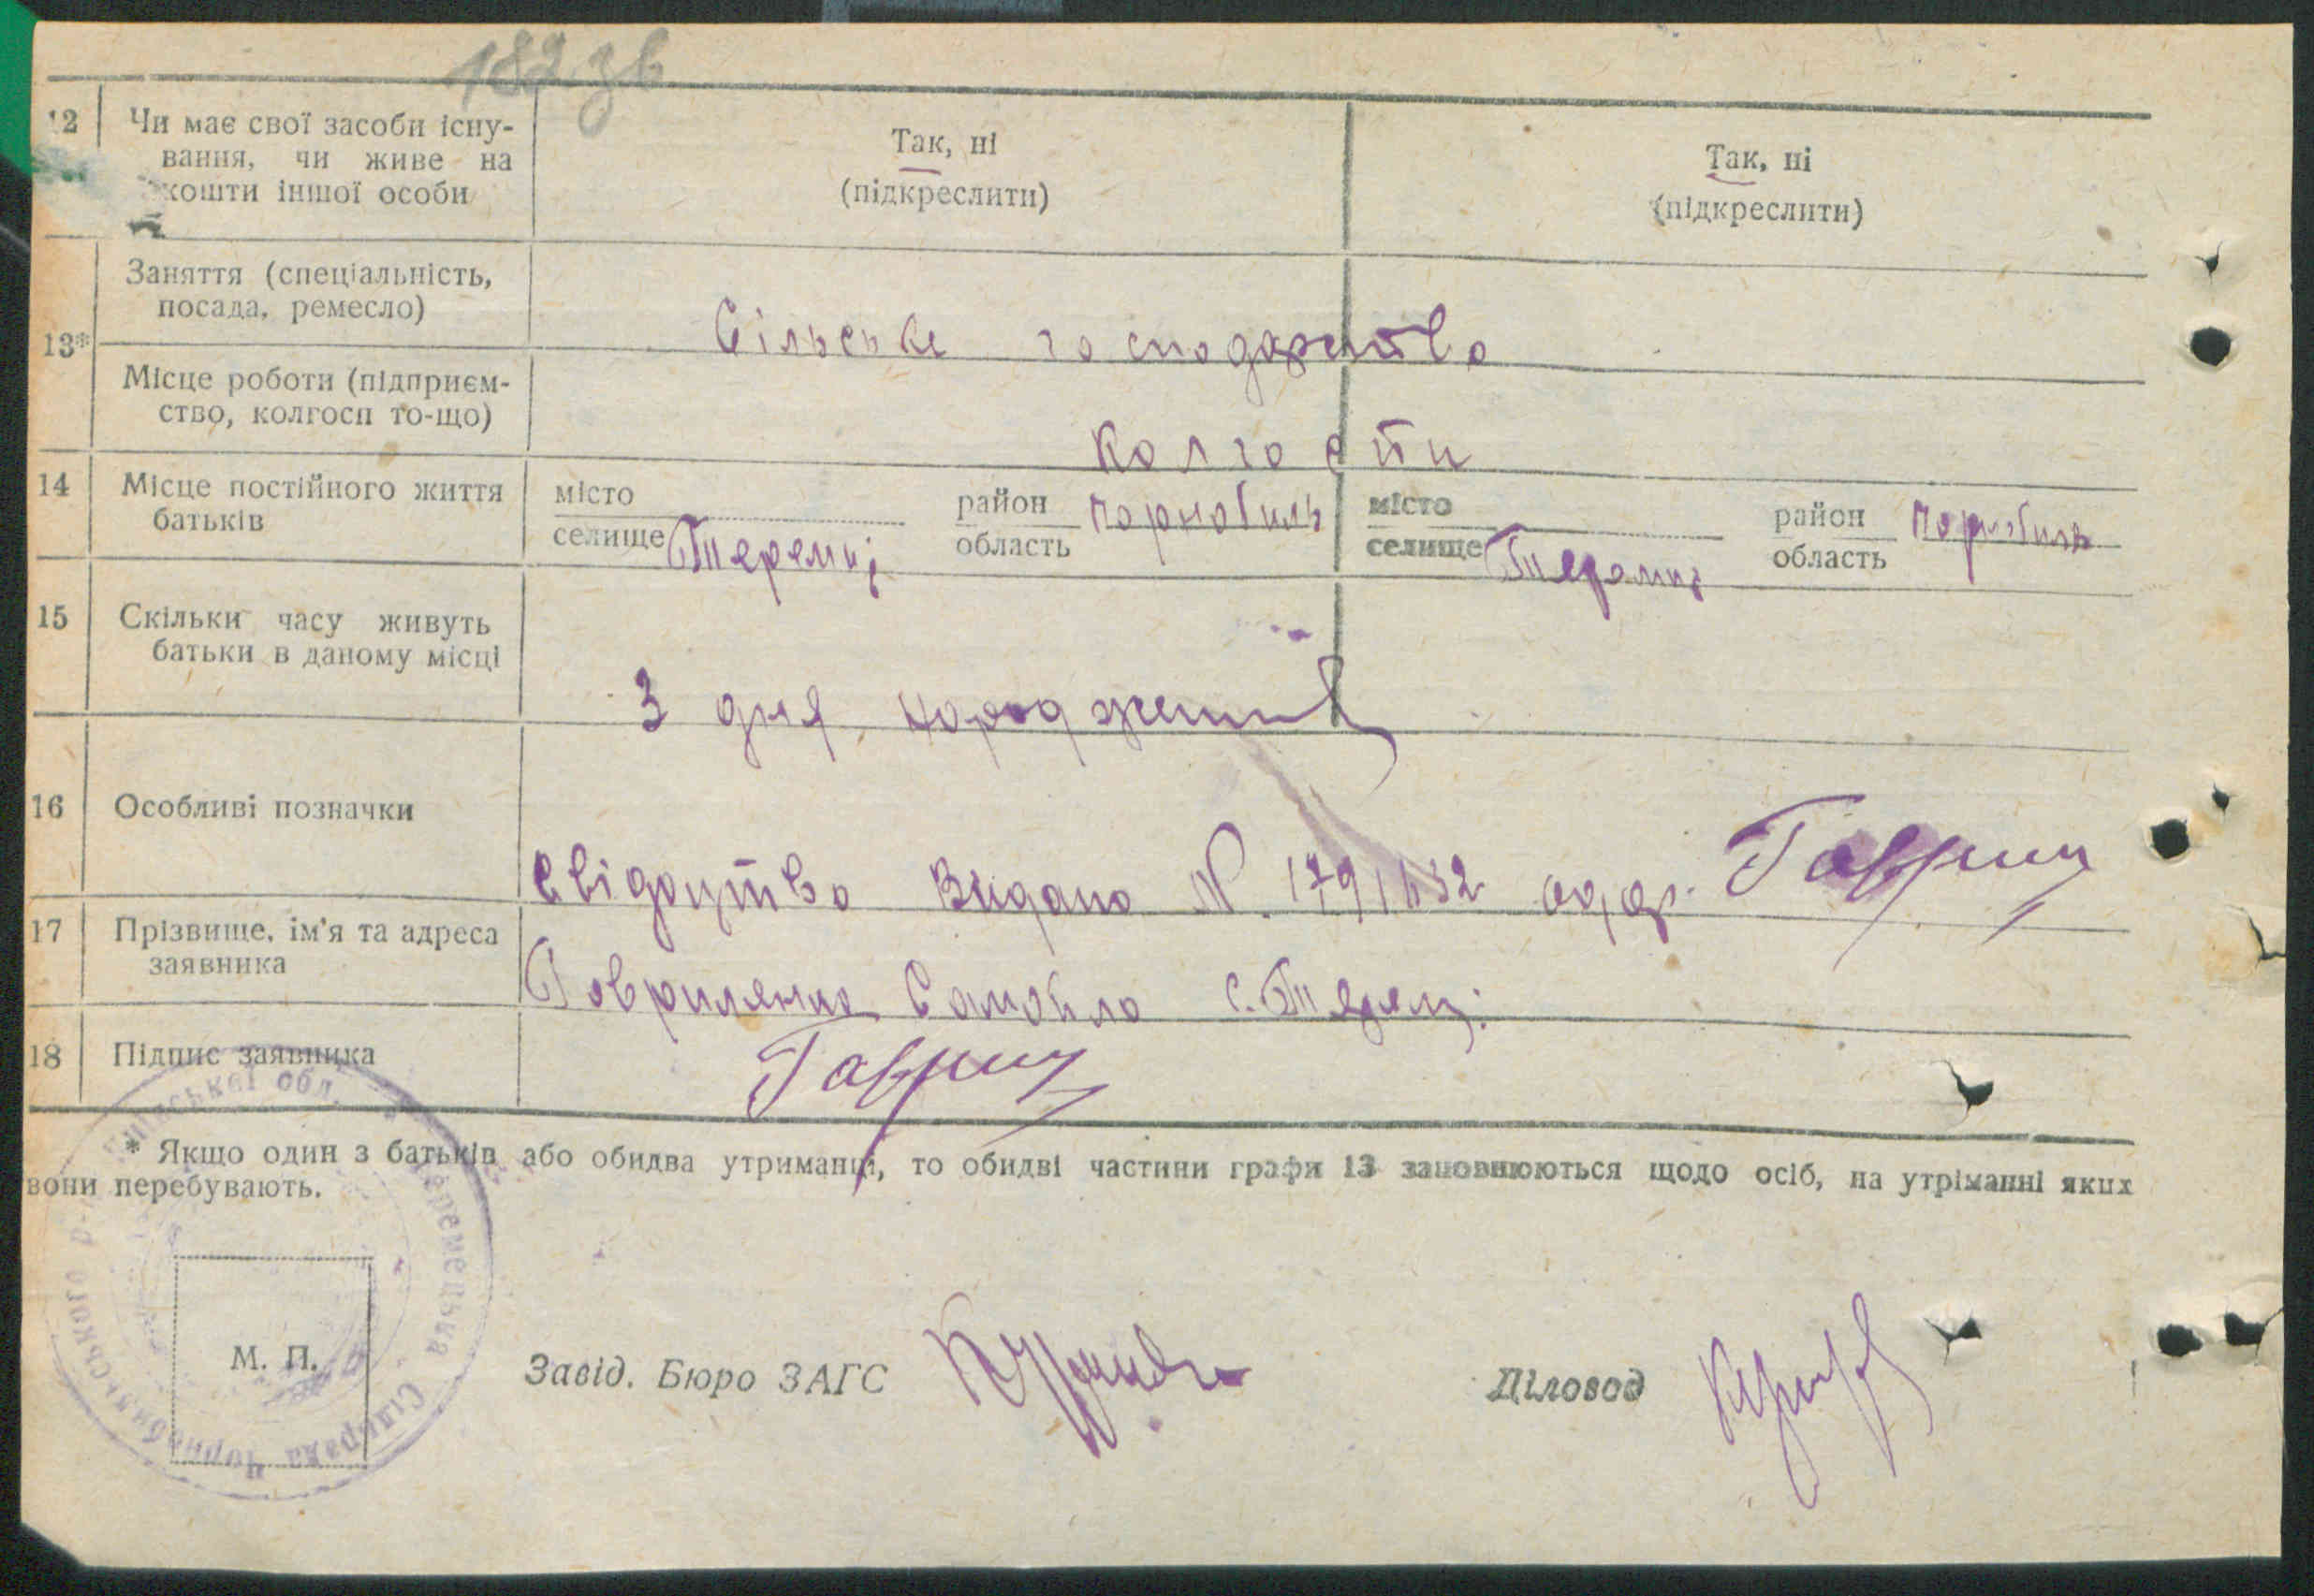 182 зв
12 Чи має свої засоби існу-
вання, чи живе на
кошти іншої особи
Так, ні
(підкреслити)
Так, ні
(підкреслити)
13* Заняття (спеціальність,
посада, ремесло)
Сільське господарство
Місце роботи (підприєм-
ство, колгосп то-що)
Колгосп
14 Місце постійного життя
батьків
місто
селище Теремці
район Чорнобиль
область
місто
селище Теремці
район Чорнобиль
область
15 Скільки часу живуть
батьки в даному місці
З дня народження
16 Особливі позначки
Свідоцтво видано №
17 Прізвище, ім'я та адреса
заявника
Гавриленко Самойло с. Теремці
18 Підпис заявника
* Якщо один з батьків або обидва утриманці, то обидві частини графи 13 заповнюються щодо осіб, на утріманні яких
вони перебувають.
М. П.
Завід. Бюро ЗАГС
Діловод
обл.
Теремецька Сільрада Чорнобильського р-